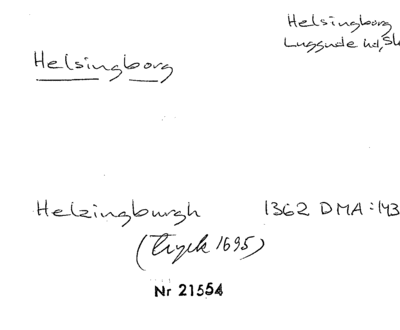 Helsingborg
Luggude hd, Sk
Helsingborg
Helzingburgh 1362 DMA:143
(tryck 1695)
Nr 21554